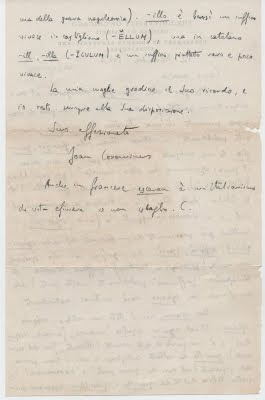 ma della guerra napoleonica). -illo è bensì un suffisso
vivace in castigliano (-ĔLLUM), ma in catalano
-ill, -illa (-ĪCULUM) è un suffisso piuttosto raro e poco
vivace.
La mia moglie gradisce il Suo ricordo, e
io resto sempre alla Sua disposizione.
Suo affezionato
Joan Coromines
Anche in francese è un italianismo
di vita efimera o non sbaglio. C.